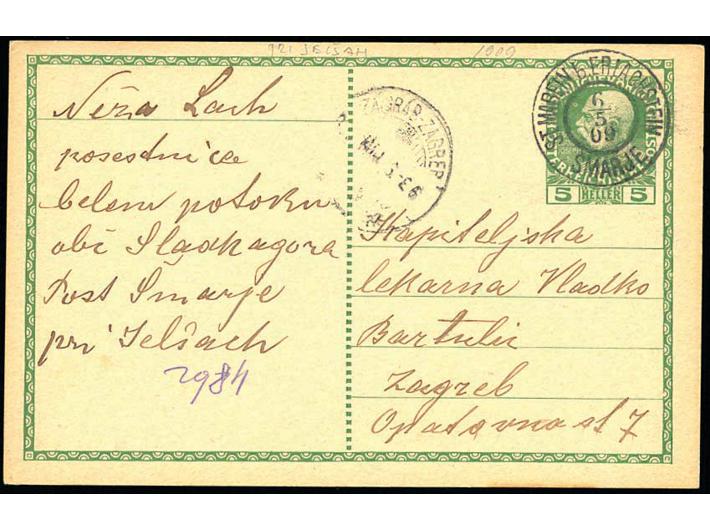 PRI JELŠAH 1909
Neža Lach
posestnica
belem potoku
obč Sladkagora
Post Smarje
pri Jelšach
2984
ZAGRAB-ZAGREB 1
ST. MAREIN b. ERLACHSTEIN
6
5
09
ŠMARJE
5 HELLER 5
Kapiteljska
lekarna Vladko
Bartulić
Zagreb
Opatovna st 7